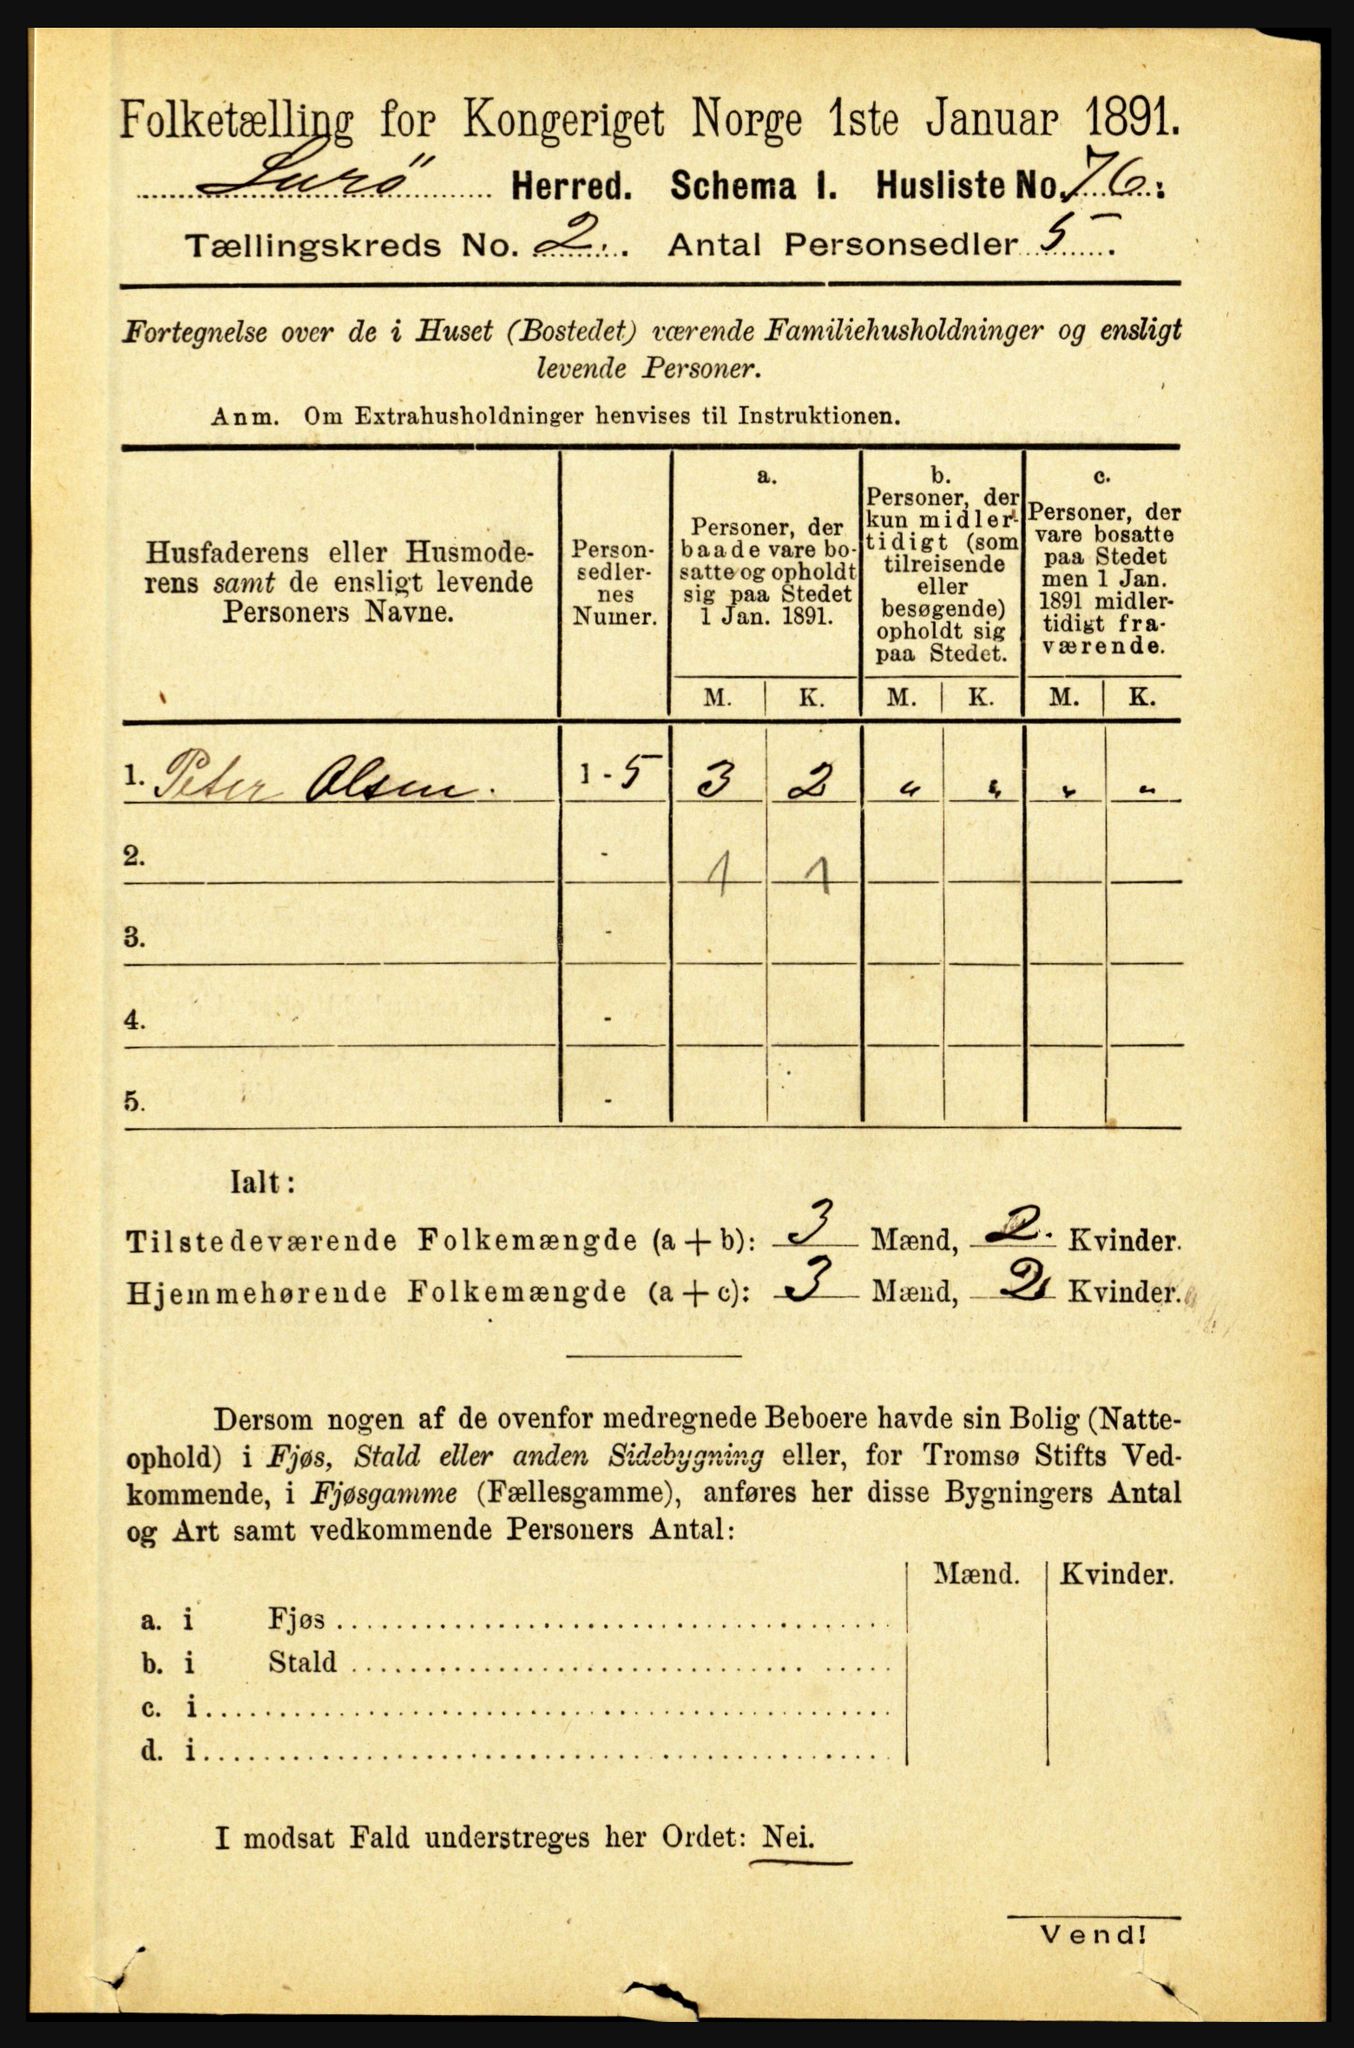 Folketælling for Kongeriget Norge 1ste Januar 1891.
Lurö Herred. Schema 1. Husliste No. 76:
Tællingskreds No. 2. Antal Personsedler 5.
Fortegnelse over de i Huset (Bostedet) værende Familiehusholdninger og ensligt
levende Personer.
Anm. Om Extrahusholdninger henvises til Instruktionen.
Husfaderens eller Husmode-
rens samt de ensligt levende
Personers Navne.
Person-
sedler-
nes
Numer.
a.
Personer, der
baade vare bo-
satte og opholdt
sig paa Stedet
1 Jan. 1891.
b.
Personer, der
kun midler-
tidigt (som
tilreisende
eller
besøgende)
opholdt sig
paa Stedet.
c.
Personer, der
vare bosatte
paa Stedet
men 1 Jan.
1891 midler-
tidigt fra-
værende.
M. K. M. K. M. K.
1. Peter Olsen. 1 - 5 3 2 " " " "
2. - 1 1
3. -
4. -
5. -
Ialt:
Tilstedeværende Folkemængde (a + b): 3 Mænd, 2. Kvinder.
Hjemmehørende Folkemængde (a + c): 3 Mænd, 2 Kvinder.
Dersom nogen af de ovenfor medregnede Beboere havde sin Bolig (Natte-
ophold) i Fjøs, Stald eller anden Sidebygning eller, for Tromsø Stifts Ved-
kommende, i Fjøsgamme (Fællesgamme), anføres her disse Bygningers Antal
og Art samt vedkommende Personers Antal:
Mænd. Kvinder.
a. i Fjøs
b. i Stald
c. i
d. i
I modsat Fald understreges her Ordet: Nei.
Vend!